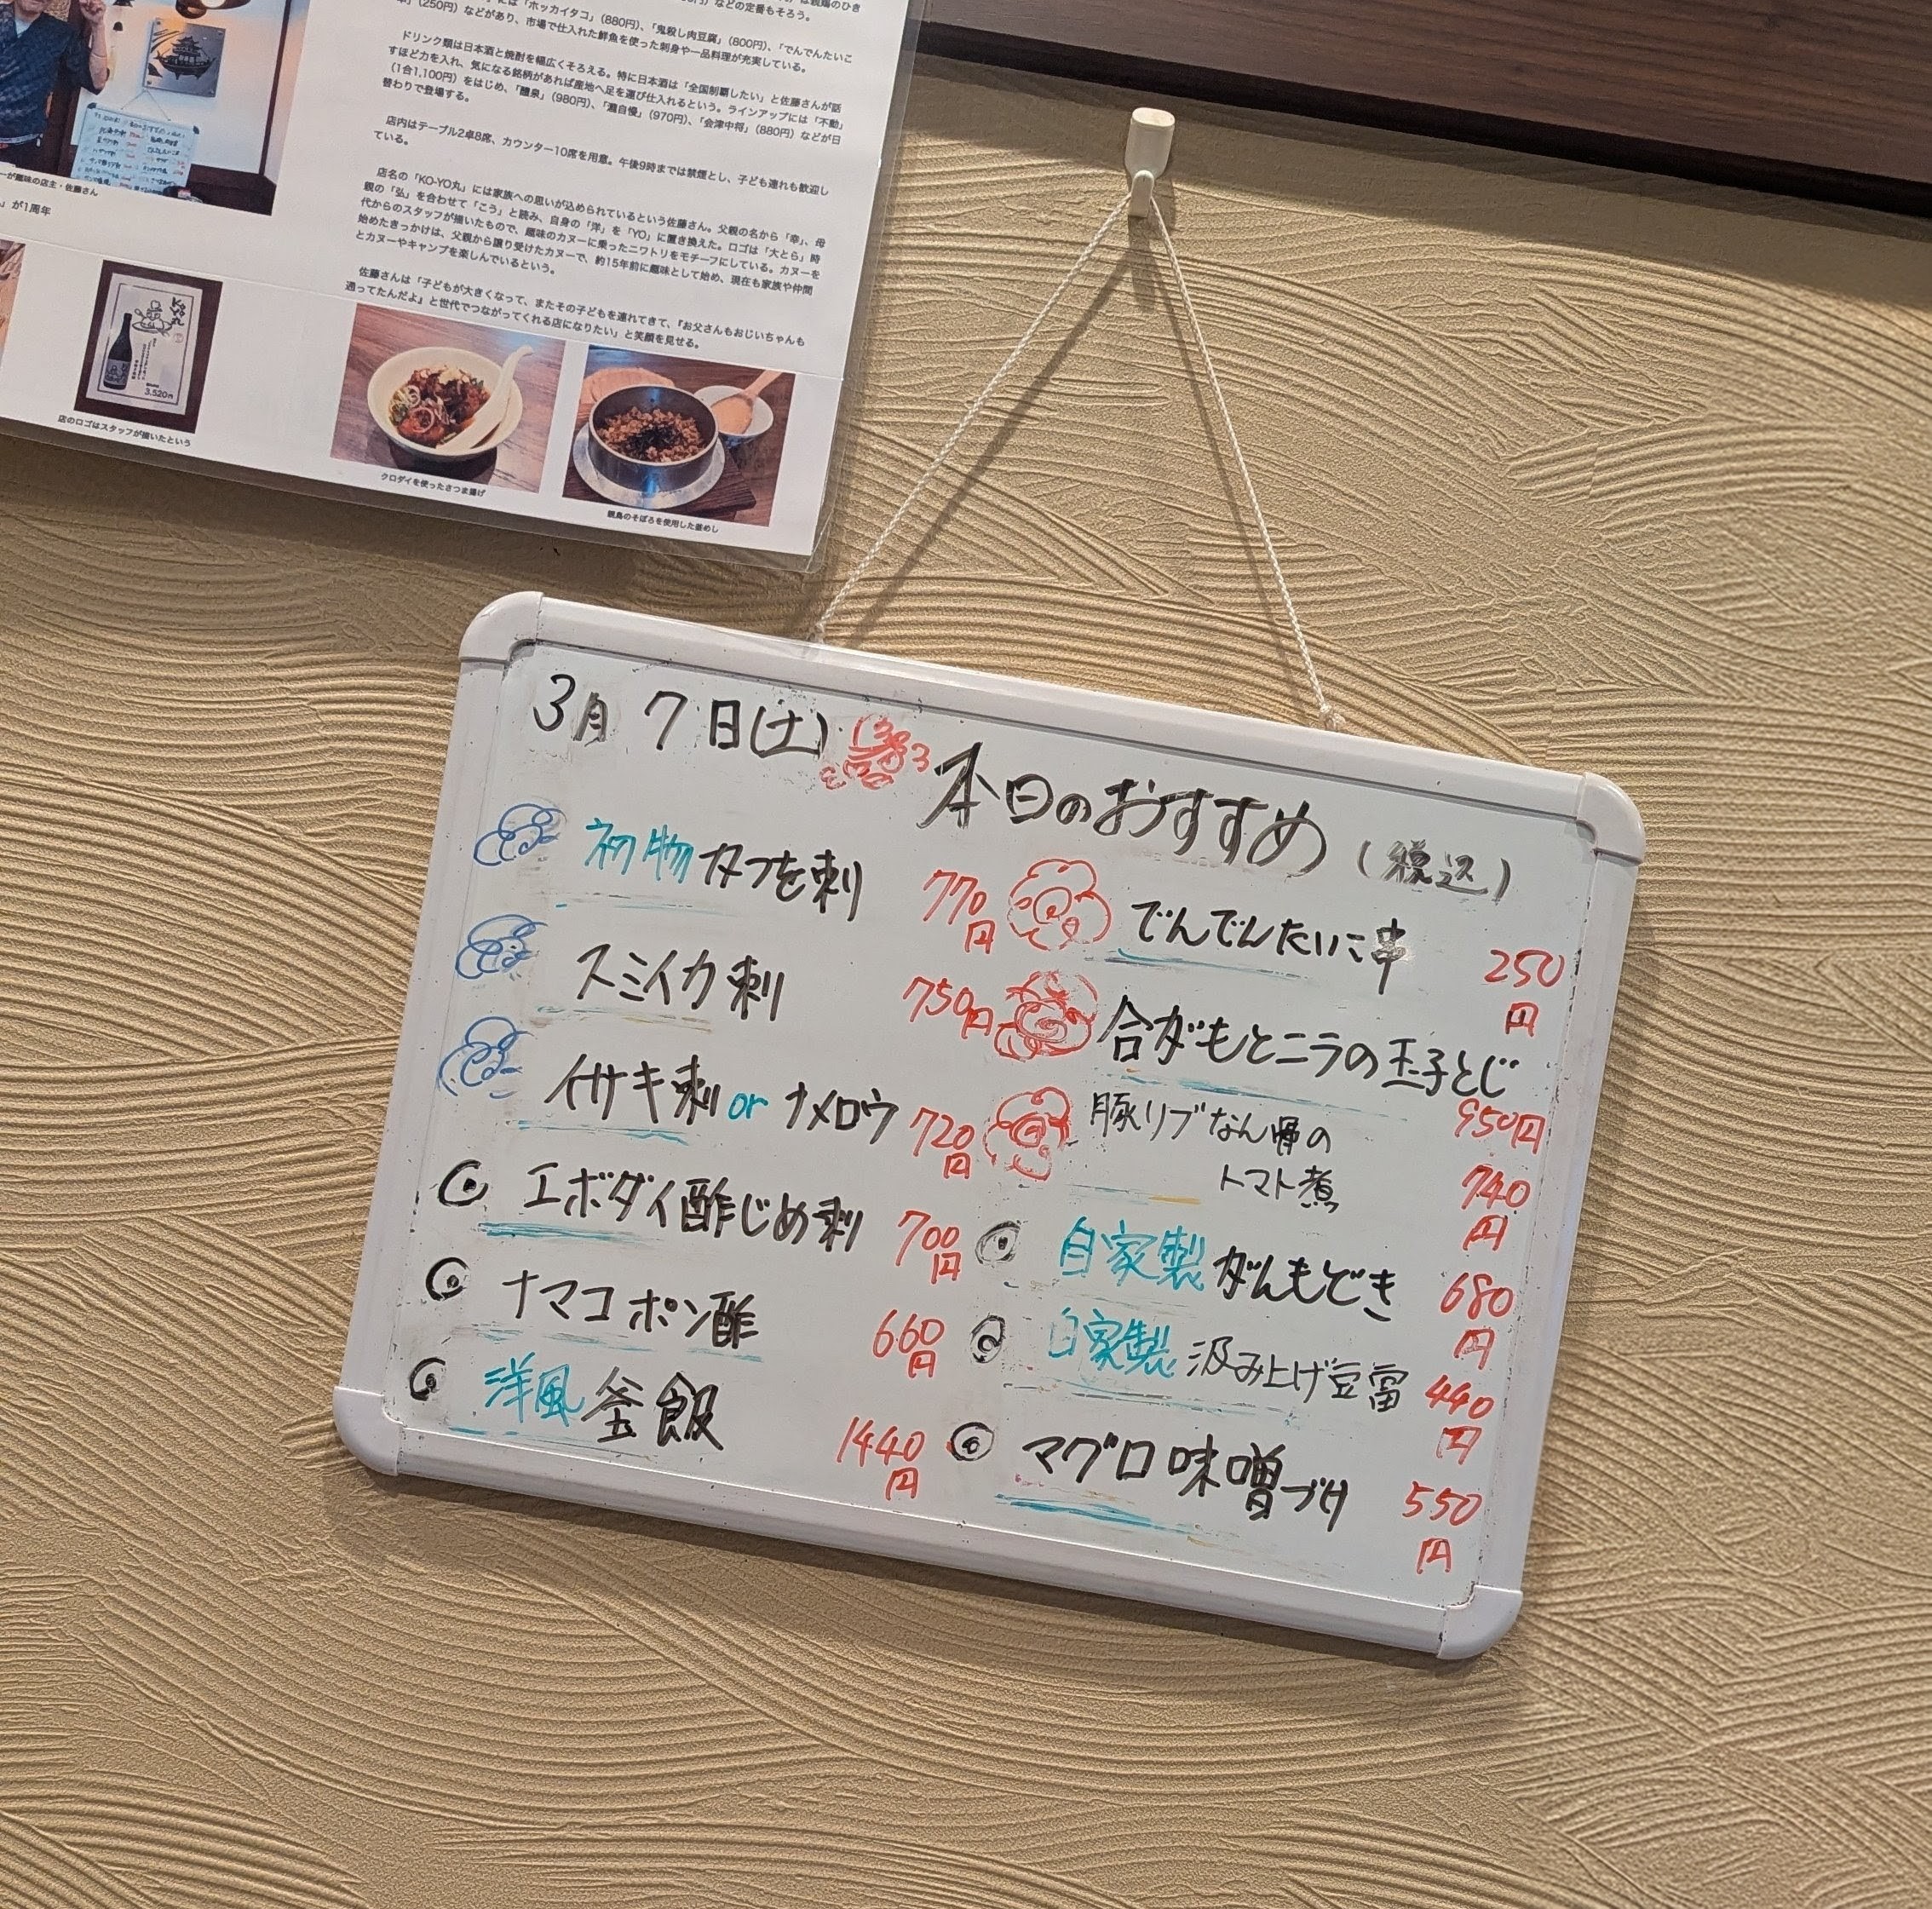 」(250円)などがあり、市場で仕入れた鮮魚を使った刺身や一品料理が充実している。
ドリンク類は日本酒と焼酎を幅広くそろえる。特に日本酒は「全国制覇したい」と佐藤さんが話
すほど力を入れ、気になる銘柄があれば産地へ足を運び仕入れるという。ラインアップには「不動」
(1合1,100円)をはじめ、「醴泉」(980円)、「瀧自慢」(970円)、「会津中将」(880円)などが日
替わりで登場する。
店内はテーブル2卓8席、カウンター10席を用意。午後9時までは禁煙とし、子ども連れも歓迎し
ている。
店名の「KO-YO丸」には家族への思いが込められているという佐藤さん。父親の名から「幸」、母
親の「弘」を合わせて「こう」と読み、自身の「洋」を「YO」に置き換えた。ロゴは「大とら」時
代からのスタッフが描いたもので、趣味のカヌーに乗ったニワトリをモチーフにしている。カヌーを
始めたきっかけは、父親から譲り受けたカヌーで、約15年前に趣味として始め、現在も家族や仲間
とカヌーやキャンプを楽しんでいるという。
佐藤さんは「子どもが大きくなって、またその子どもを連れてきて、『お父さんもおじいちゃんも
通ってたんだよ』と世代でつながってくれる店になりたい」と笑顔を見せる。
ーが趣味の店主・佐藤さん
」が1周年
3,520円
店のロゴはスタッフが描いたという
クロダイを使ったさつま揚げ
親鳥のそぼろを使用した釜めし
3月7日(土)
本日のおすすめ(税込)
初物 カツを刺 770円
スミイカ刺 750円
イサキ刺 or ナメロウ 720円
エボダイ酢じめ刺 700円
ナマコポン酢 660円
洋風 釜飯 1440円
でんでんたいこ串 250円
合ガモとニラの玉子とじ 950円
豚リブなん骨の
トマト煮 740円
自家製 がんもどき 680円
自家製 汲み上げ豆富 440円
マグロ味噌づけ 550円